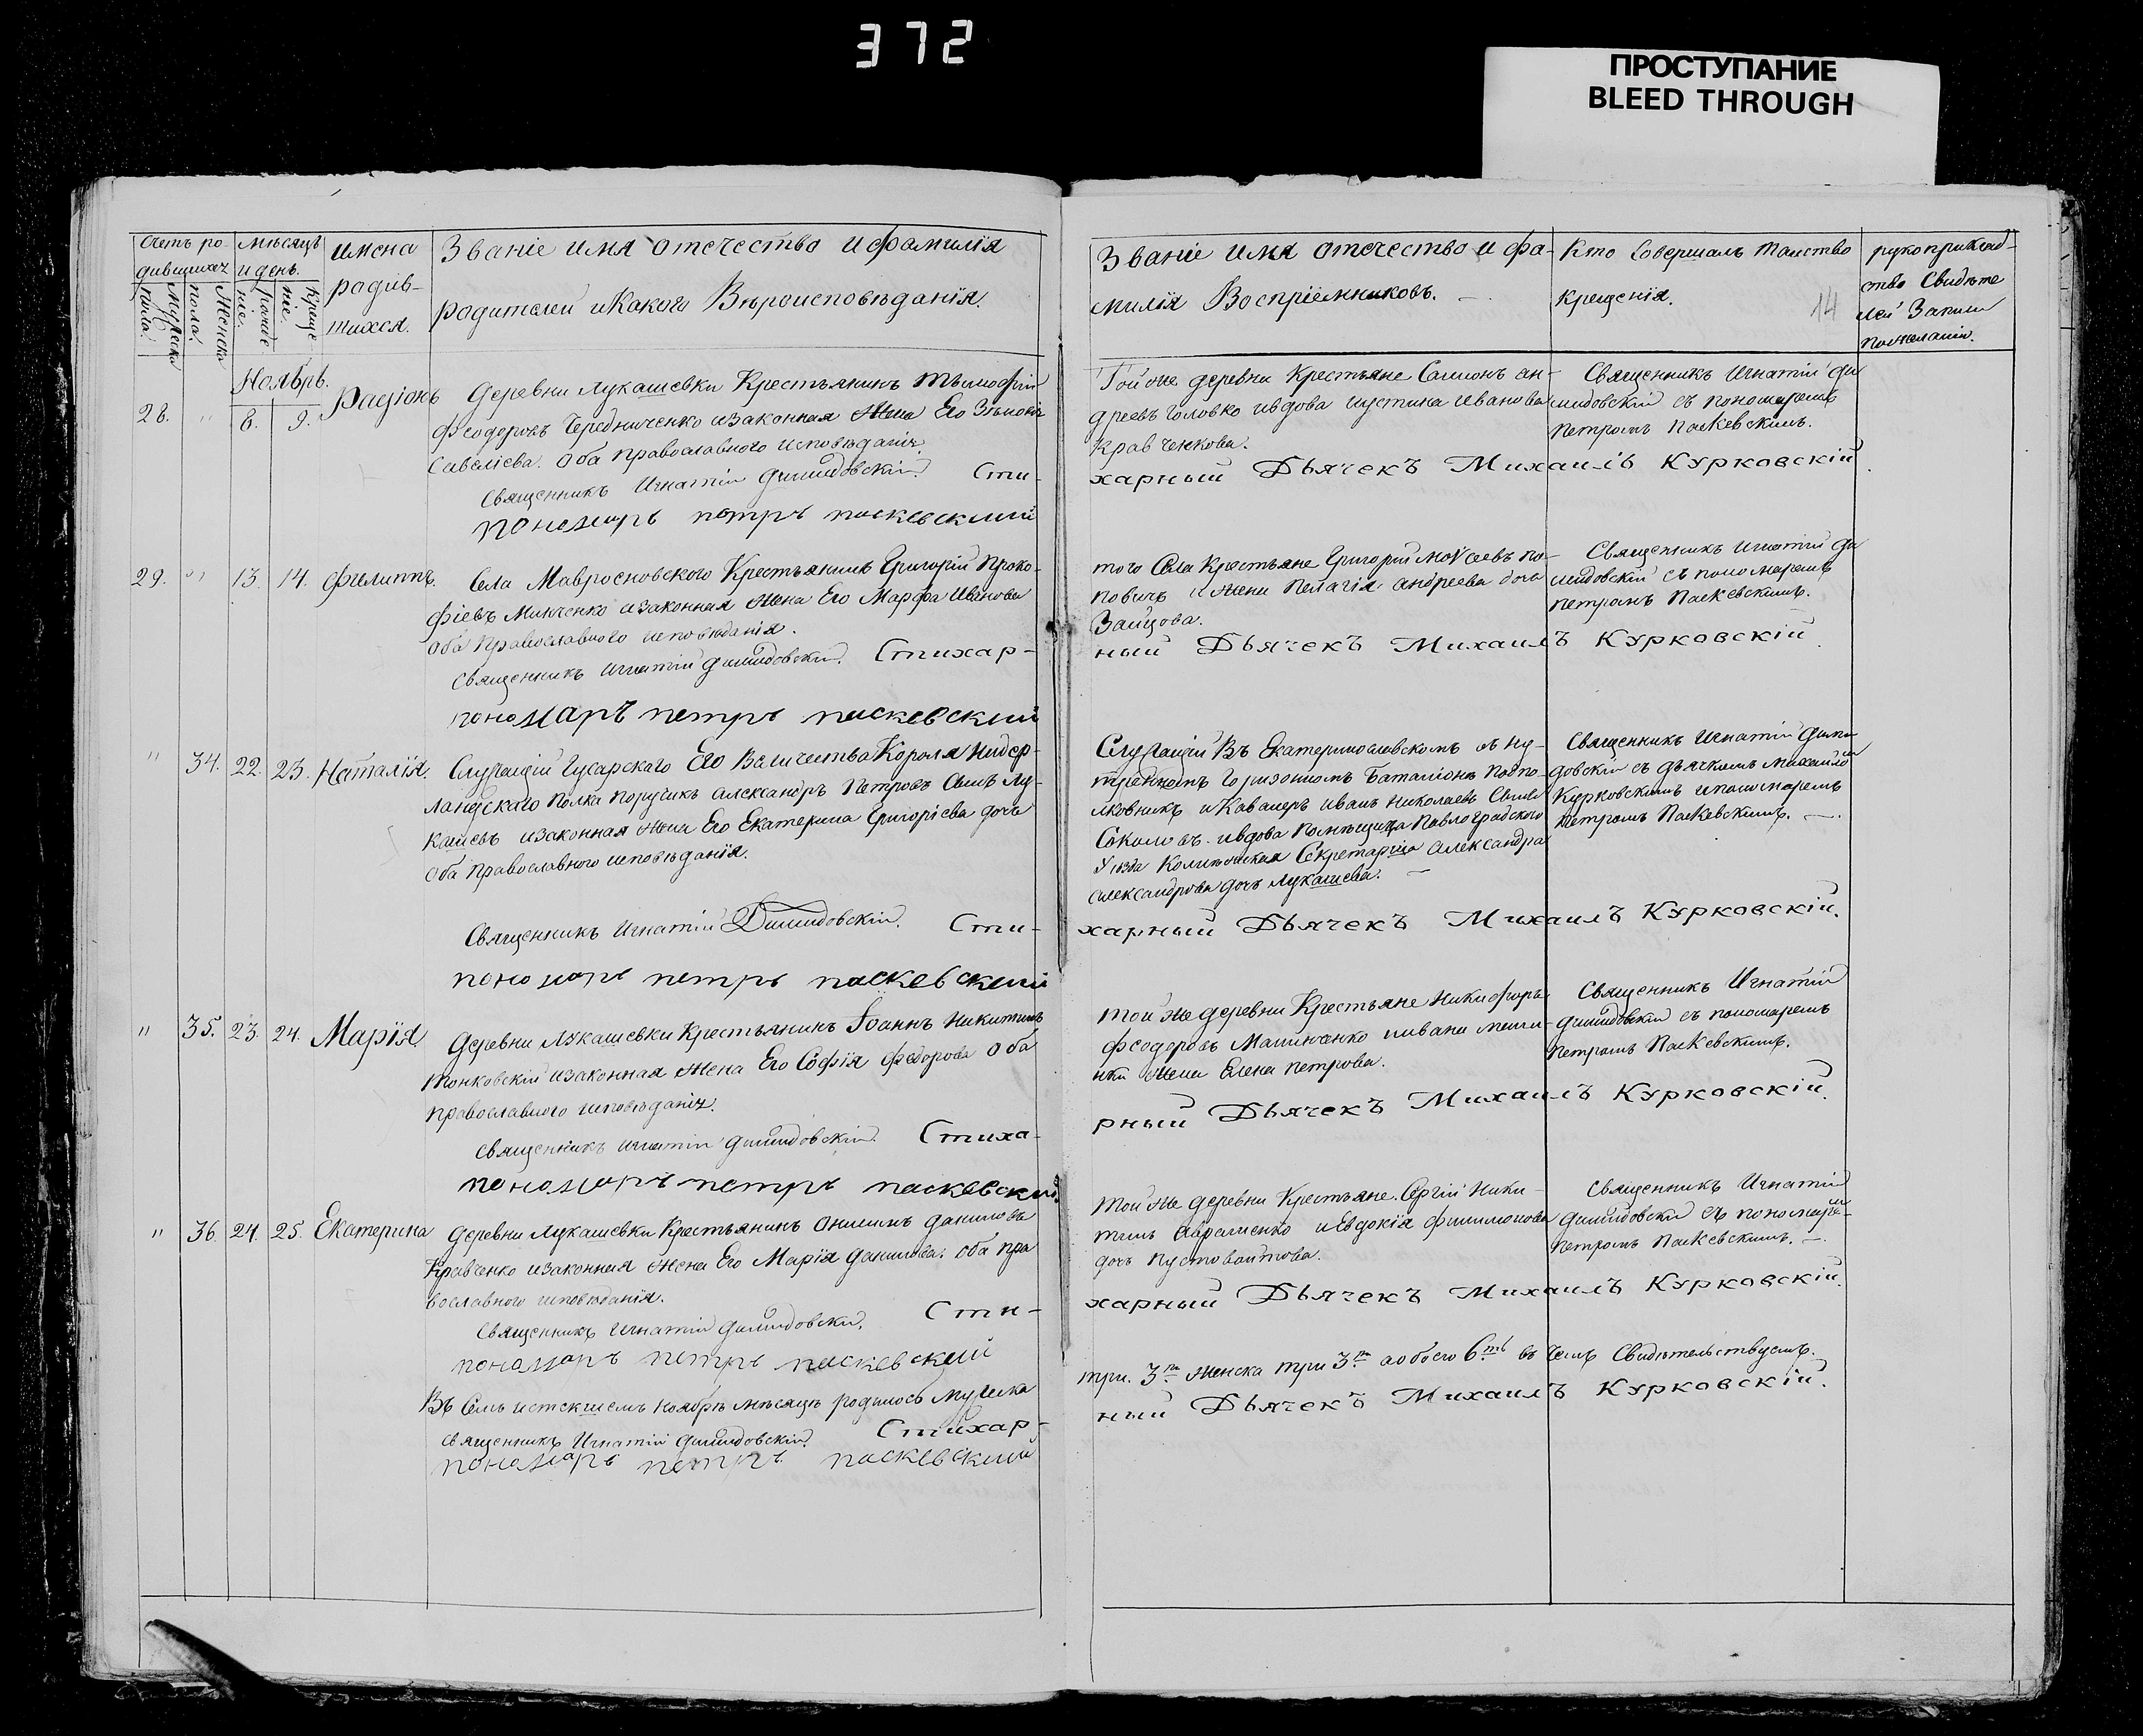 372
ПРОСТУПАНИЕ
BLEED THROUGH
Счетъ ро-
дившихся
Мужеска
пола.
Женска
пола.
мѣсяцъ
и день.
рожде
ніе.
Креще
ніе.
имена
родив-
шихся.
Званіе имя отечество и фамилія
родителей и какого Вѣроисповѣданія.
Званіе имя отечество и фа-
милія Воспріемниковъ.
Кто Совершалъ таинство
крещенія.
14
рукоприклад-
ство Свидѣте
лей Записи
по желанію.
Ноябрь.
28. " 8. 9. Радіонъ
деревни Лукашевки Крестьянинъ Тимофій
Феодоровъ Чередниченко и законная Жена Его Зѣновія
Савеліева. Оба православнаго исповѣданія.
Священникъ Игнатій Демидовскій. Сти-
пономарь петръ паскевскій
Той же деревни Крестьяне Самионъ ан-
дреевъ Головко и вдова иустина Иванова
Кравченкова.
харный Дьячекъ Михаилъ Курковскій
Священникъ Игнатій Де
мидовскій съ пономаремъ
Петромъ Паскевскимъ.
29. " 13. 14. Филиппъ.
Села Мавросновского Крестьянинъ Григорій Проко-
фіевъ Минченко и законная Жена Его Марфа Иванова
Оба Православнаго исповѣданія.
Священникъ Игнатій Демидовскій. Стихар-
пономарь петръ паскевский
того Села Крестьяне Григорій Моѵсеевъ по-
повичъ и жена Пелагія андреева дочь
Заицова.
ный Дьячекъ Михаилъ Курковскій
Священникъ Игнатій Де
мидовскій съ пономаремъ
Петромъ Паскевскимъ.
" 34. 22. 23. Наталія.
Служащій Гусарскаго Его Величества Короля Нидер-
ландскаго Полка Поручикъ Александръ Петровъ Сынъ Лу-
кашевъ и законная Жена Его Екатерина Григоріева дочь
Оба православного исповѣданія.
Священникъ Игнатій Демидовскій. Сти-
пономарь петръ паскевский
Служащій Въ Екатеринославскомъ Вну-
треннемъ Гарнизонномъ Баталіонѣ Подпо-
лковникъ и Кавалеръ Иванъ Николаевъ Сынъ
Соколовъ. и вдова Помѣщица Павлоградского
Уѣзда Колѣжская Секретарша Александра
Александрова дочь Лукашева.
харный Дьячекъ Михаилъ Курковскій.
Священникъ Игнатій Деми
довскій съ дьячкомъ Михаиломъ
Курковскимъ и пономаремъ
Петромъ Паскевскимъ.
" 35. 23. 24. Марія.
деревни Лукашевки Крестьянинъ Іоаннъ Никитинъ
Тонковскій и законная Жена Его Софія Федорова Оба
православного исповѣданія.
Священникъ Игнатій Демидовскій. Стиха-
пономарь петръ паскевский
Той же деревни Крестьяне Никифоръ
Феодоровъ
жена Елена Петрова.
рный Дьячекъ Михаилъ Курковскій.
Священникъ Игнатій
Демидовскій съ пономаремъ
Петромъ Паскевскимъ.
" 36. 24. 25. Екатерина
деревни Лукашевки Крестьянинъ Онисимъ Даниловъ
Кравченко и законная Жена Его Марія Данилова. Оба пра
вославного исповѣданія.
Священникъ Игнатій Демидовскій. Сти-
пономарь петръ паскевский
Той же деревни Крестьяне. Сергій Ники-
тинъ Авраменко и Евдокія Филимонова
дочь Пустовойтова.
харный Дьячекъ Михаилъ Курковскій.
Священникъ Игнатій
Демидовскій съ пономаремъ
Петромъ Паскевскимъ.
Въ Семъ истекшемъ Ноябрѣ мѣсяцѣ родилось Мужска
три. 3ри Женска три 3ри а обоего 6ть въ чемъ Свидѣтельствуемъ.
Священникъ Игнатій Демидовскій. Стихар-
ный Дьячекъ Михаилъ Курковскій.
пономарь петръ паскевский